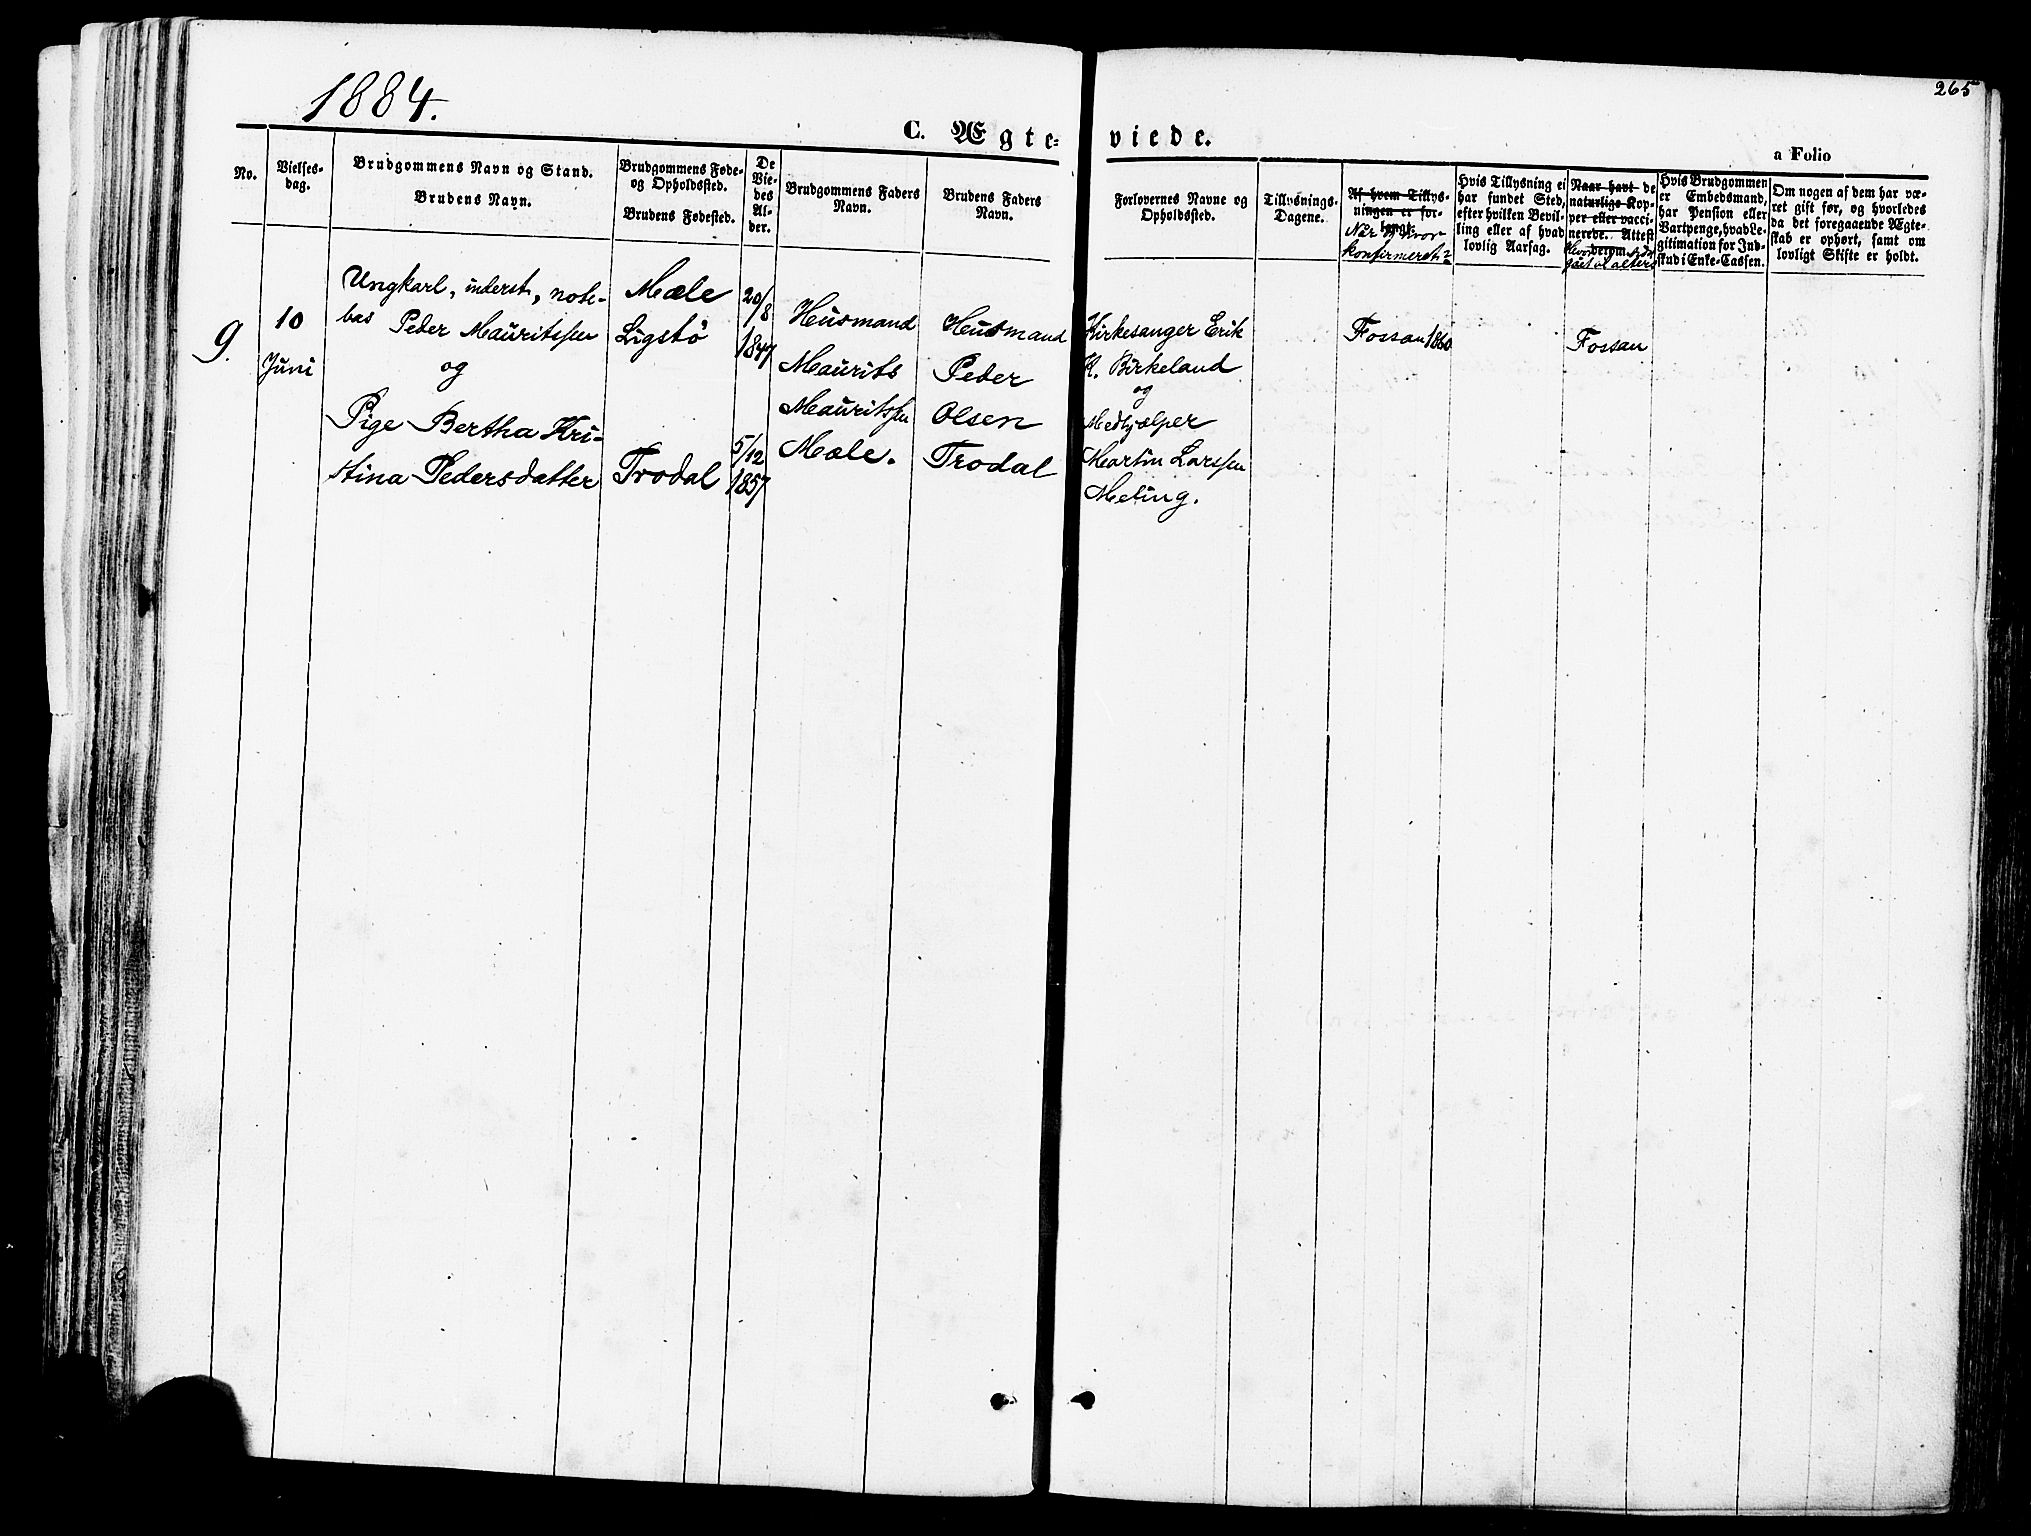 1884.
265
C. Ægte-
viede.
a Folio
No.
Vielses-
dag.
Brudgommens Navn og Stand.
Brudens Navn.
Brudgommens Føde-
og Opholdssted.
Brudens Fødested.
De
Vie-
des
Al-
der.
Brudgommens Faders
Navn.
Brudens Faders
Navn.
Forlovernes Navne og
Opholdssted.
Tillysnings-
Dagene.
Af hvem Tillys-
ningen er for-
langt.
Når og hvor
konfirmeret?
Hvis Tillysning ei
har fundet Sted,
efter hvilken Bevil-
ling eller af hvad
lovlig Aarsag.
Naar havt de
naturlige Kop-
per eller vacci-
nerede. Attest
derom.
Hvis Brudgommen
er Embedsmand,
har Pension eller
Vartpenge, hvad Le-
gitimation for Ind-
skud i Enke-Cassen.
Om nogen af dem har væ-
ret gift før, og hvorledes
da det foregaaende Ægte-
skab er ophørt, samt om
lovligt Skifte er holdt.
9.
10
Juni
Ungkarl, inderst, note-
bas Peder Mauritssen
og
Pige Bertha Kri-
stina Pedersdatter
Mæle
Ligstø
Trodal
20/8
1847
5/12
1857
Husmand
Maurits
Mauritssen
Mæle.
Husmand
Peder
Olsen
Trodal
Kirkesanger Erik
K. Birkeland
og
Medhjælper
Martin Larssen
Meling.
Fossan 1860
Fossan